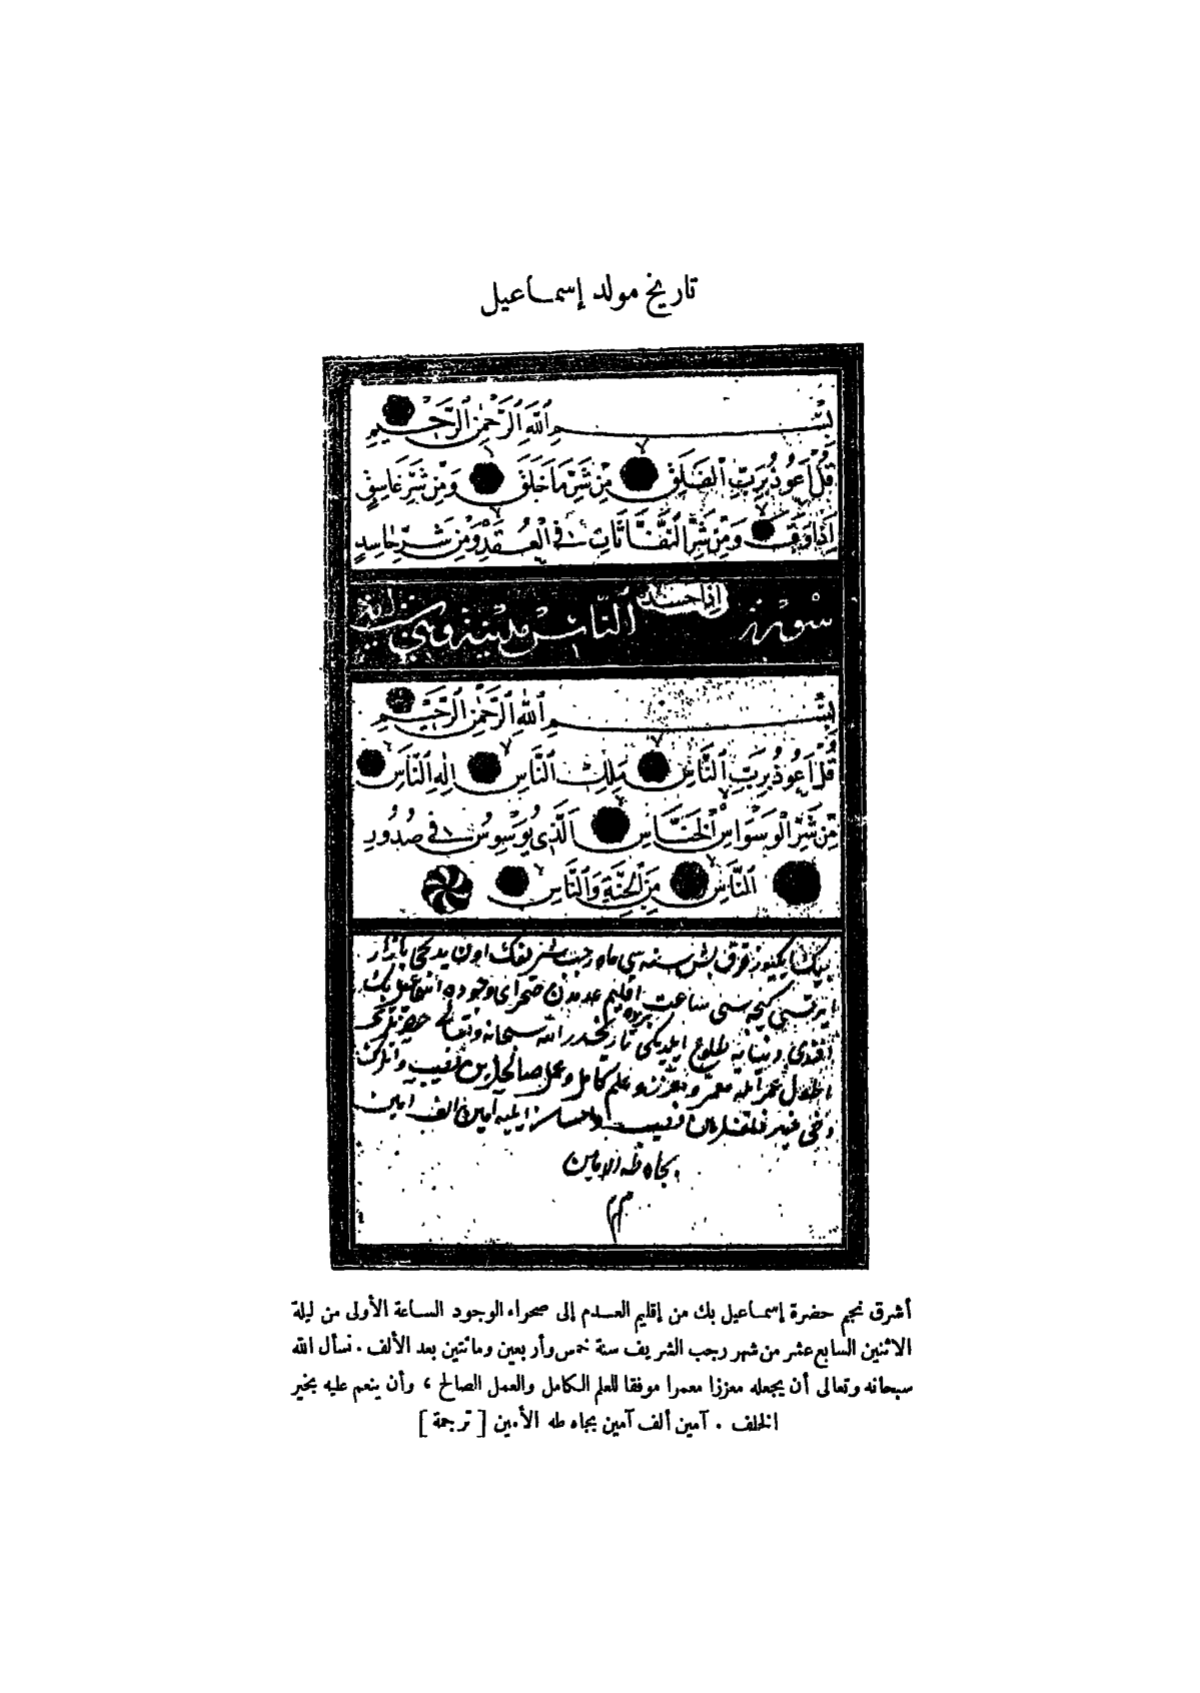 تاريخ مولد إسماعيل
بسم الله الرحمن الرحيم
قُلْ أَعُوذُ بِرَبِّ الْفَلَقِ مِن شَرِّ مَا خَلَقَ وَمِن شَرِّ غَاسِقٍ
إِذَا وَقَبَ وَمِن شَرِّ النَّفَّاثَاتِ فِي الْعُقَدِ وَمِن شَرِّ حَاسِدٍ
إِذَا حَسَدَ
سورة الناس
بسم الله الرحمن الرحيم
قُلْ أَعُوذُ بِرَبِّ النَّاسِ مَلِكِ النَّاسِ إِلٰهِ النَّاسِ
مِن شَرِّ الْوَسْوَاسِ الْخَنَّاسِ الَّذِي يُوَسْوِسُ فِي صُدُورِ
النَّاسِ مِنَ الْجِنَّةِ وَالنَّاسِ
بيك ايكيوز قرق بش سنه سي ماه رجب شريفك اون يدنجي بازار
ايرتسي كيجه سي ساعت اقليم عدمدن صحراى وجوده اسماعيل بك
افندى طلوع ايلديكى تاريخدر الله سبحانه وتعالى حضرتلرى
علم كامل وعمل صالح
آمين الف آمين
بجاه طه الامين
أشرق نجم حضرة إسماعيل بك من إقليم العدم إلى صحراء الوجود الساعة الأولى من ليلة
الاثنين السابع عشر من شهر رجب الشريف سنة خمس وأربعين ومائتين بعد الألف . نسأل الله
سبحانه وتعالى أن يجعله معززا معمرا موفقا للعلم الكامل والعمل الصالح ، وأن ينعم عليه بخير
الخلف . آمين ألف آمين بجاه طه الأمين [ ترجمة ]